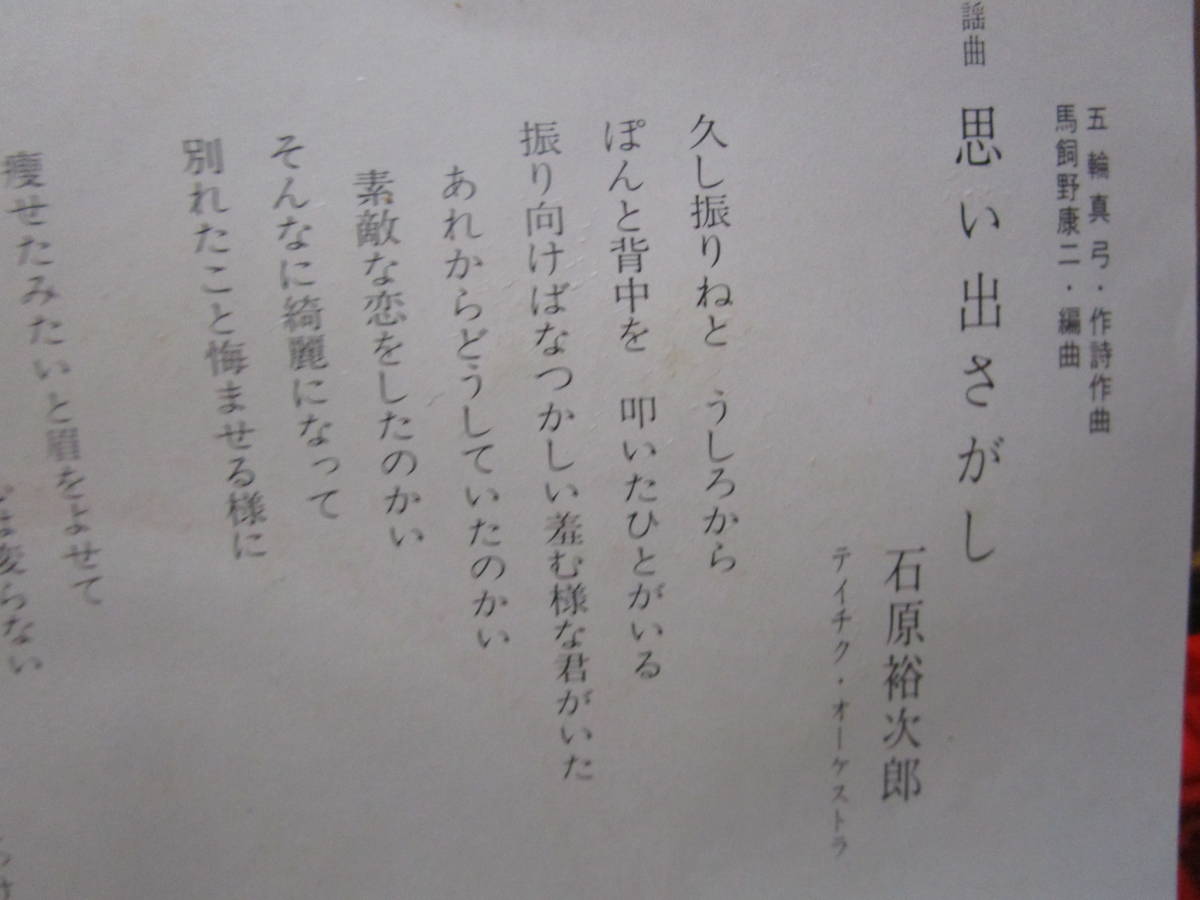 五輪真弓・作詩作曲
馬飼野康二・編曲
謡曲 思い出さがし
石原裕次郎
テイチク・オーケストラ
久し振りねと うしろから
ぽんと背中を 叩いたひとがいる
振り向けばなつかしい羞む様な君がいた
あれからどうしていたのかい
素敵な恋をしたのかい
そんなに綺麗になって
別れたこと悔ませる様に
痩せたみたいと眉をよせて
は変らない